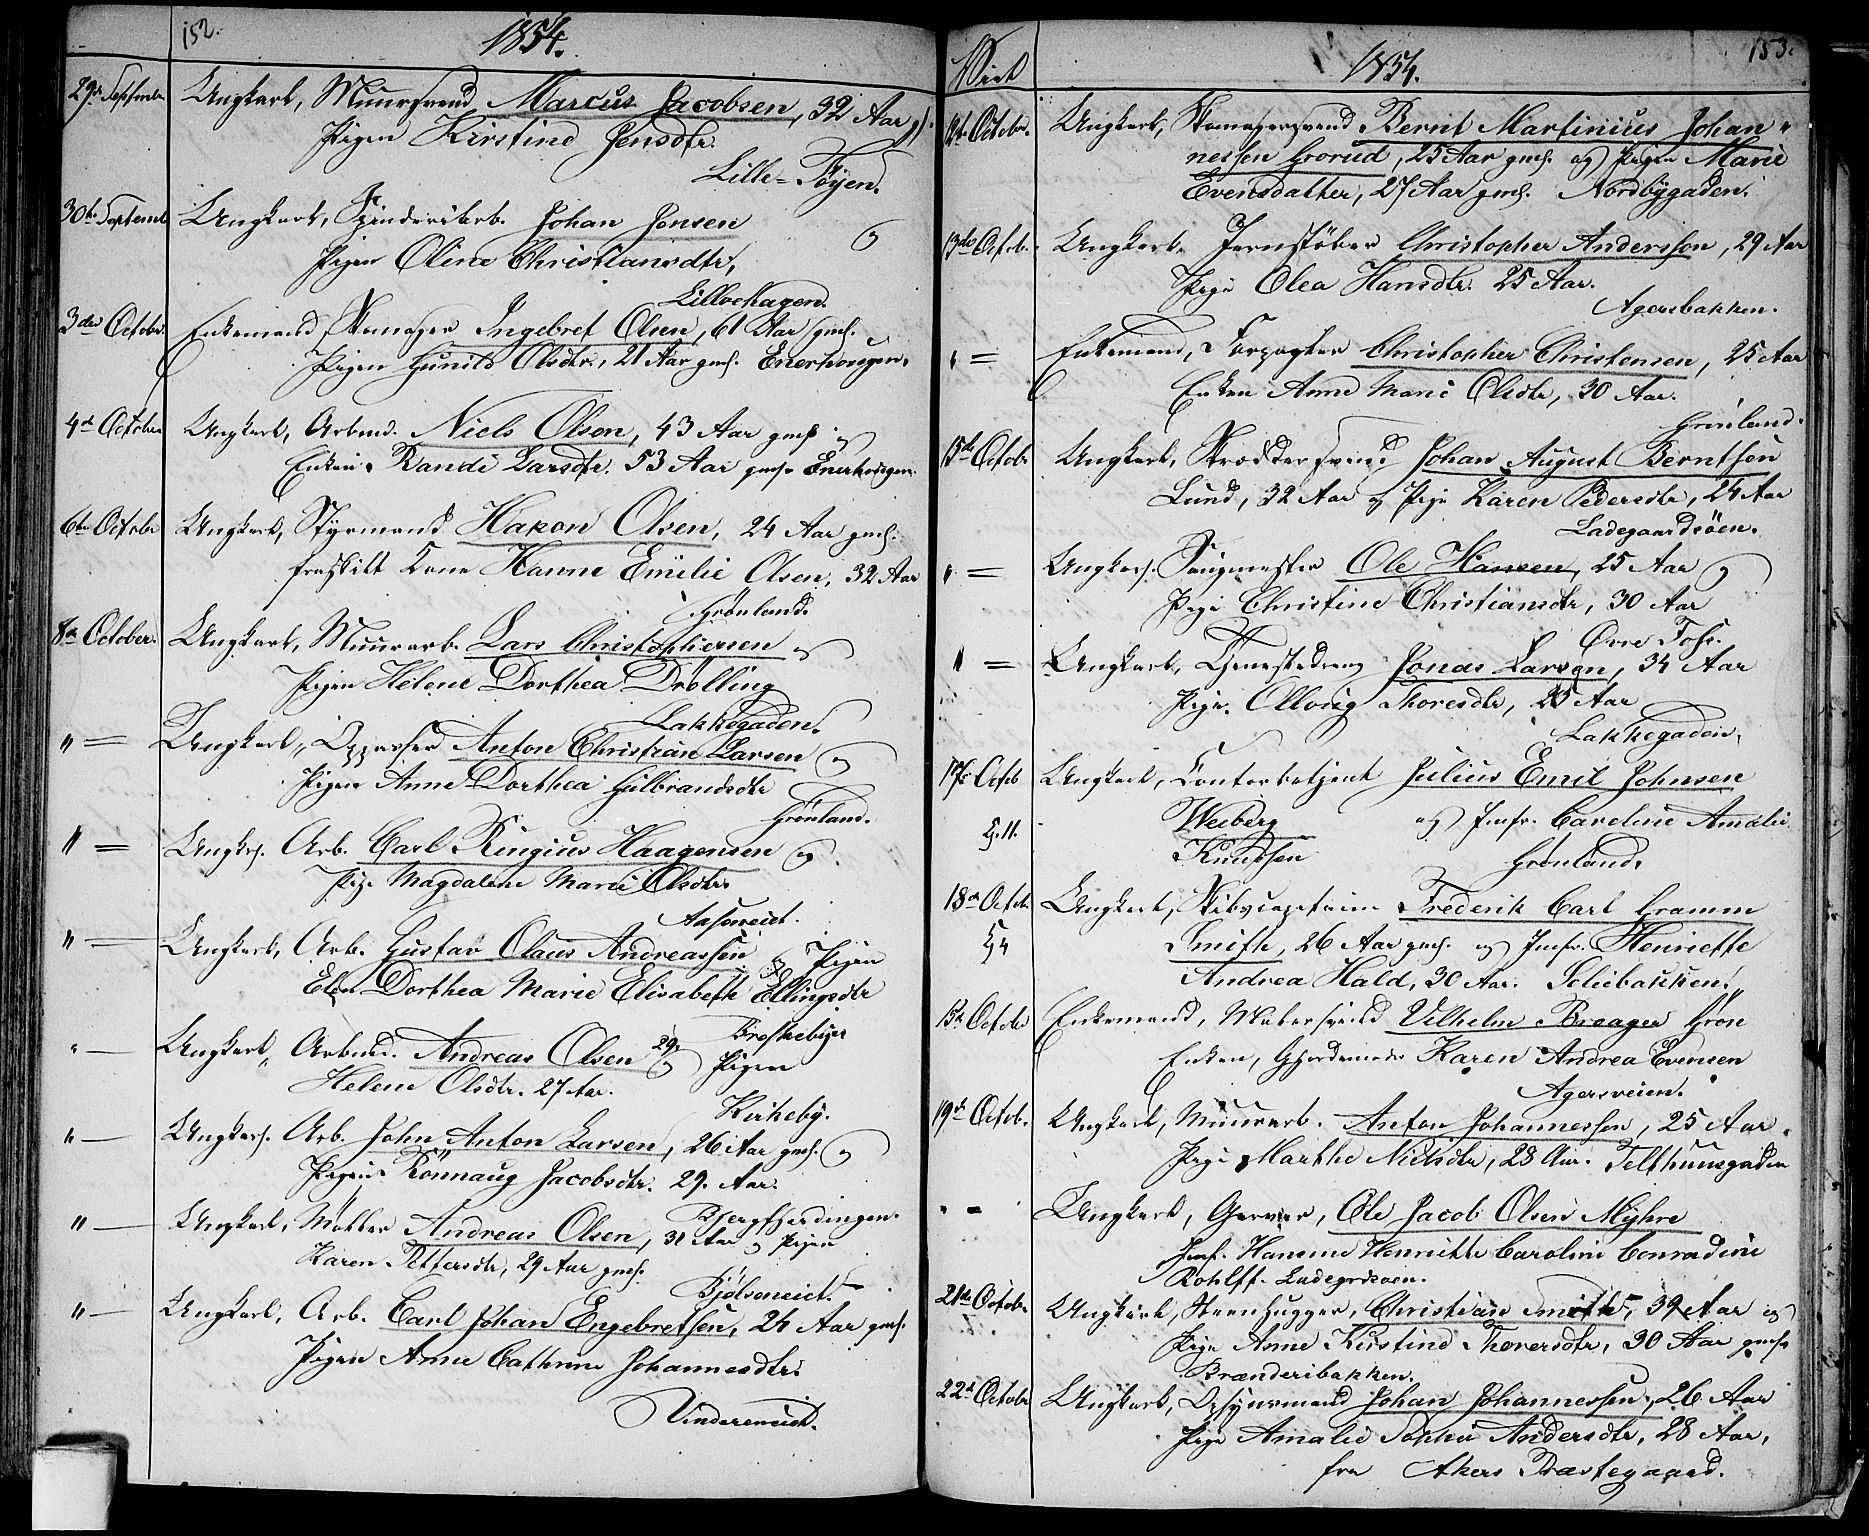 152.
1854.
29de September Ungkarl, Muursvend Marcus Jacobsen, 32 Aar g).
Pigen Kirstine Jensdtr.
Lille-Töyen.
30te Septemb. Ungkarl, Spinderiarb. Johan Jensen og
Pigen Oline Christiansdtr,
Lillohagen.
3die Octobr. Enkemand Skomager Ingebret Olsen, 61 Aar gml.
og Pigen Gunild Olsdtr., 21 Aar gml. Enerhougen.
4de October Ungkarl, Arbmd. Niels Olsen, 43 Aar gml og
Enken Randi Larsdtr. 53 Aar gml. Enerhougen.
6te Octobr Ungkarl, Styrmand Hakon Olsen, 24 Aar gml.
fraskilt Kone Hanne Emilie Olsen, 32 Aar
Grönland.
8de October. Ungkarl, Muurarb. Lars Christophersen og
Pigen Helene Dorthea Drölling
Lakkegaden.
" = Ungkarl, Oppasser Anton Christian Larsen og
Pigen Anne Dorthea Gulbrandsdtr
Grönland.
" = Ungkrl. Arb. Carl Ringius Haagensen og
Pige Magdalene Marie Olsdtr.
Aaseneiet.
" — Ungkarl, Arb. Gustav Olaus Andreassen og Pigen
Elen Dorthea Marie Elisabeth Ellingsdtr
" — Ungkarl, Arbmd. Andreas Olsen 29. og Pigen
Helene Olsdtr. 27 Aar.
Kirkeby.
" — Ungkarl. Arb. John Anton Larsen, 26 Aar gml. og
Pigen Rönnaug Jacobsdtr. 29. Aar.
Bjergfjerdingen.
" — Ungkarl, Möller Andreas Olsen, 31 Aar og Pigen
Karen Pettersdtr, 29 Aar gml.
Bjölseneiet.
" — Ungkarl, Arb. Carl Johan Engebretsen, 24 Aar gml.
Pigen Anne Cathrine Johannesdtr.
Vindereneiet.
Viet
1854.
153.
12te Octobr. Ungkarl, Skomagersvend Bernt Martinius Johan-
nessen Grorud, 25 Aar gml. og Pigen Marie
Evensdatter, 27 Aar gml. Nordbygaden.
13de Octob. Ungkarl Jernstöber Christopher Anderssen, 29 Aar
Pige Olea Hansdtr. 25 Aar.
Agersbakken.
" = Enkemand, Forpagter Christopher Christensen, 25 Aar
og Enken Anne Marie Olsdtr, 30 Aar.
Grönland.
15de Octob. Ungkarl, Skræddersvend Johan August Berntsen
Lund, 32 Aar og Pige Karen Pedersdtr, 24 Aar
Ladegaardsöen.
" = Ungkarl. Saugmester Ole Hansen, 25 Aar og
Pige Christine Christiansdtr, 30 Aar
Övre Fos.
" = Ungkarl, Tjenestedreng Jonas Larsen, 34 Aar
Pige. Olloug Thoresdtr, 25 Aar
Lakkegaden.
17de Octob Ungkarl, Contorbetjent Julius Emil Johnsen
G. 11. Weiberg og Jmfr. Caroline Amalie
Knudsen Grönland.
18de Octob. Ungkarl, Skibscapitain Frederik Carl Gramm
G 4 Smith, 26 Aar gml. og Jmfr. Henriette
Andrea Hald, 30 Aar. Soliebakken.
15de Octobr Enkemand, Malersvend Vilhelm Breager Grön
og Enken, Gjordemoder Karen Andrea Evensen
Agersveien.
19de Octob. Ungkarl, Muurarb. Anton Johannessen, 25 Aar.
Pige Marthe Nielsdtr, 28 Aar. Telthuusgaden
" — Ungkarl, Garver, Ole Jacob Olsen Myhre
Jmf. Hansine Henriette Caroline Conradine
Rohlff. Ladegrdsöen.
21de Octobr Ungkarl, Steenhugger, Christian Smith, 39 Aar og
Pige Anne Kirstine Thoversdtr, 30 Aar gml.
Brænderibakken.
22de Octobr Ungkarl, Opsynsmand Johan Johannessen, 26 Aar
Pige Amalie Sophie Andersdtr, 28 Aar,
fra Akers Præstegaard.